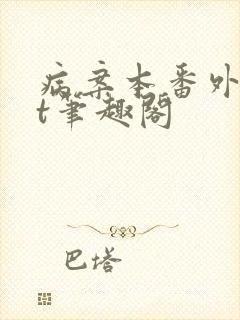 病案本番外
t笔趣阁
巴塔